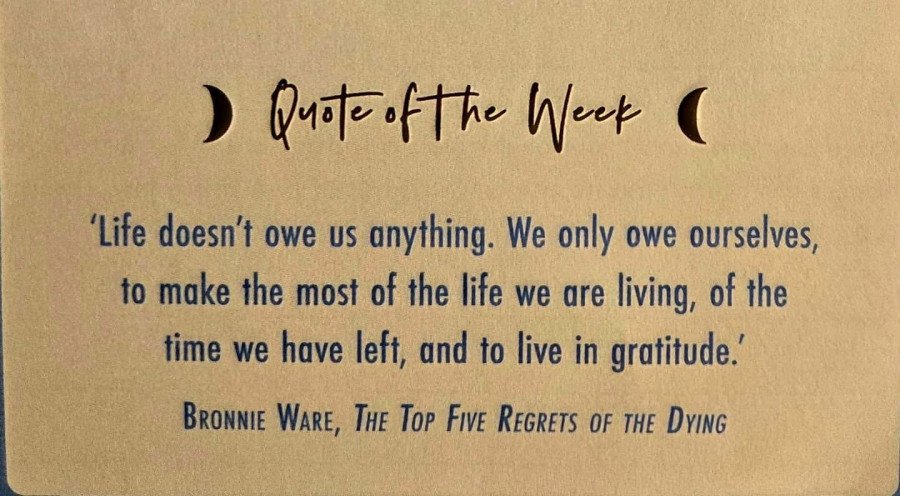 Quote of the Week
‘Life doesn’t owe us anything. We only owe ourselves,
to make the most of the life we are living, of the
time we have left, and to live in gratitude.’
Bronnie Ware, The Top Five Regrets of the Dying